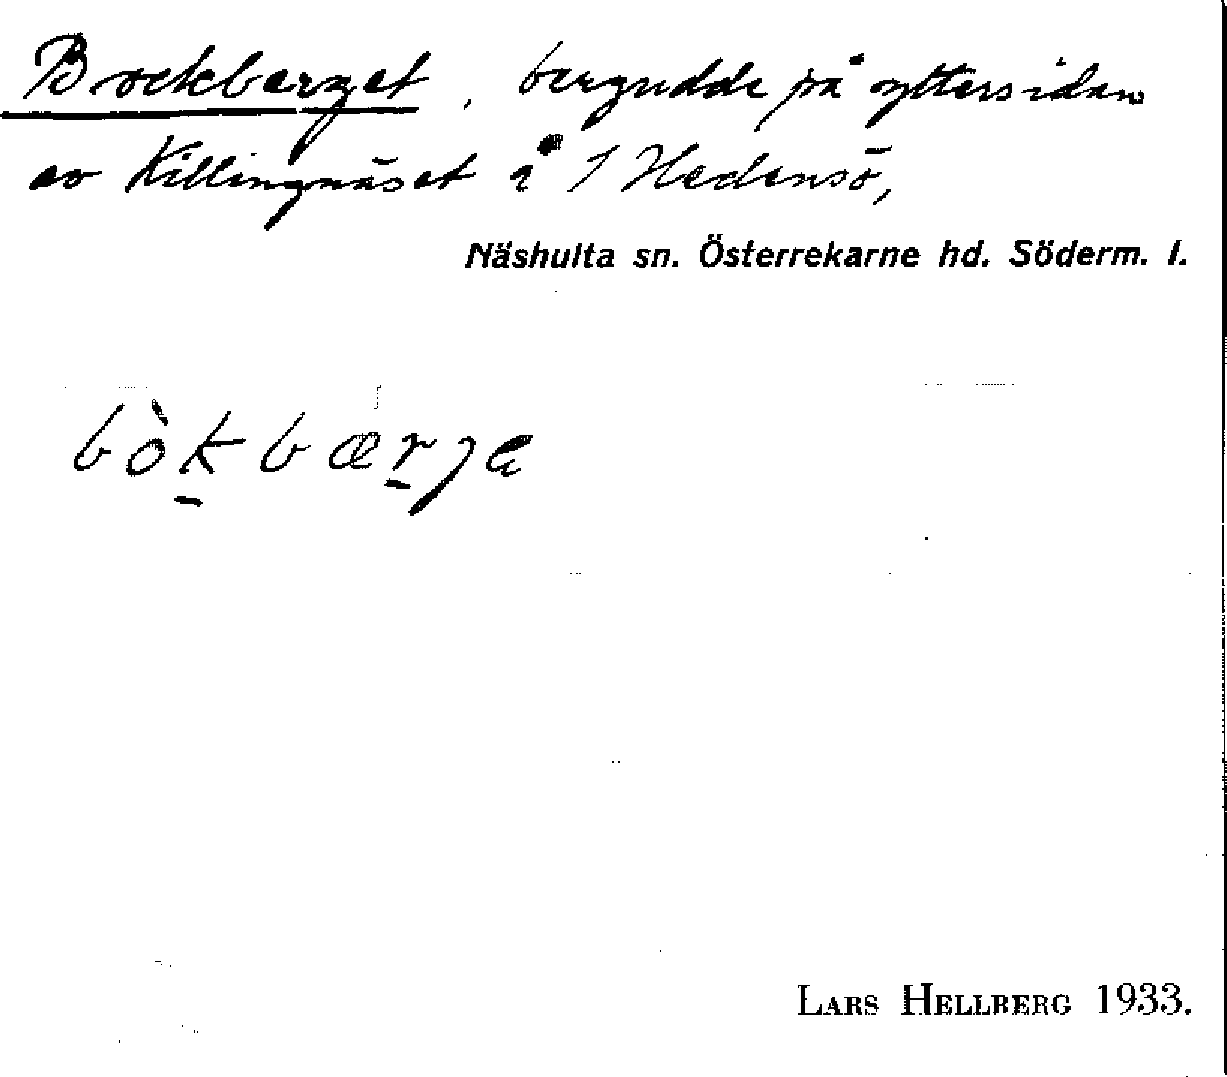 Bockberget, bergudde på yttersidan
av Killingnäset å 1 Hedensö,
Näshulta sn. Österrekarne hd. Söderm. l.
bòkbærjə
LARS HELLBERG 1933.